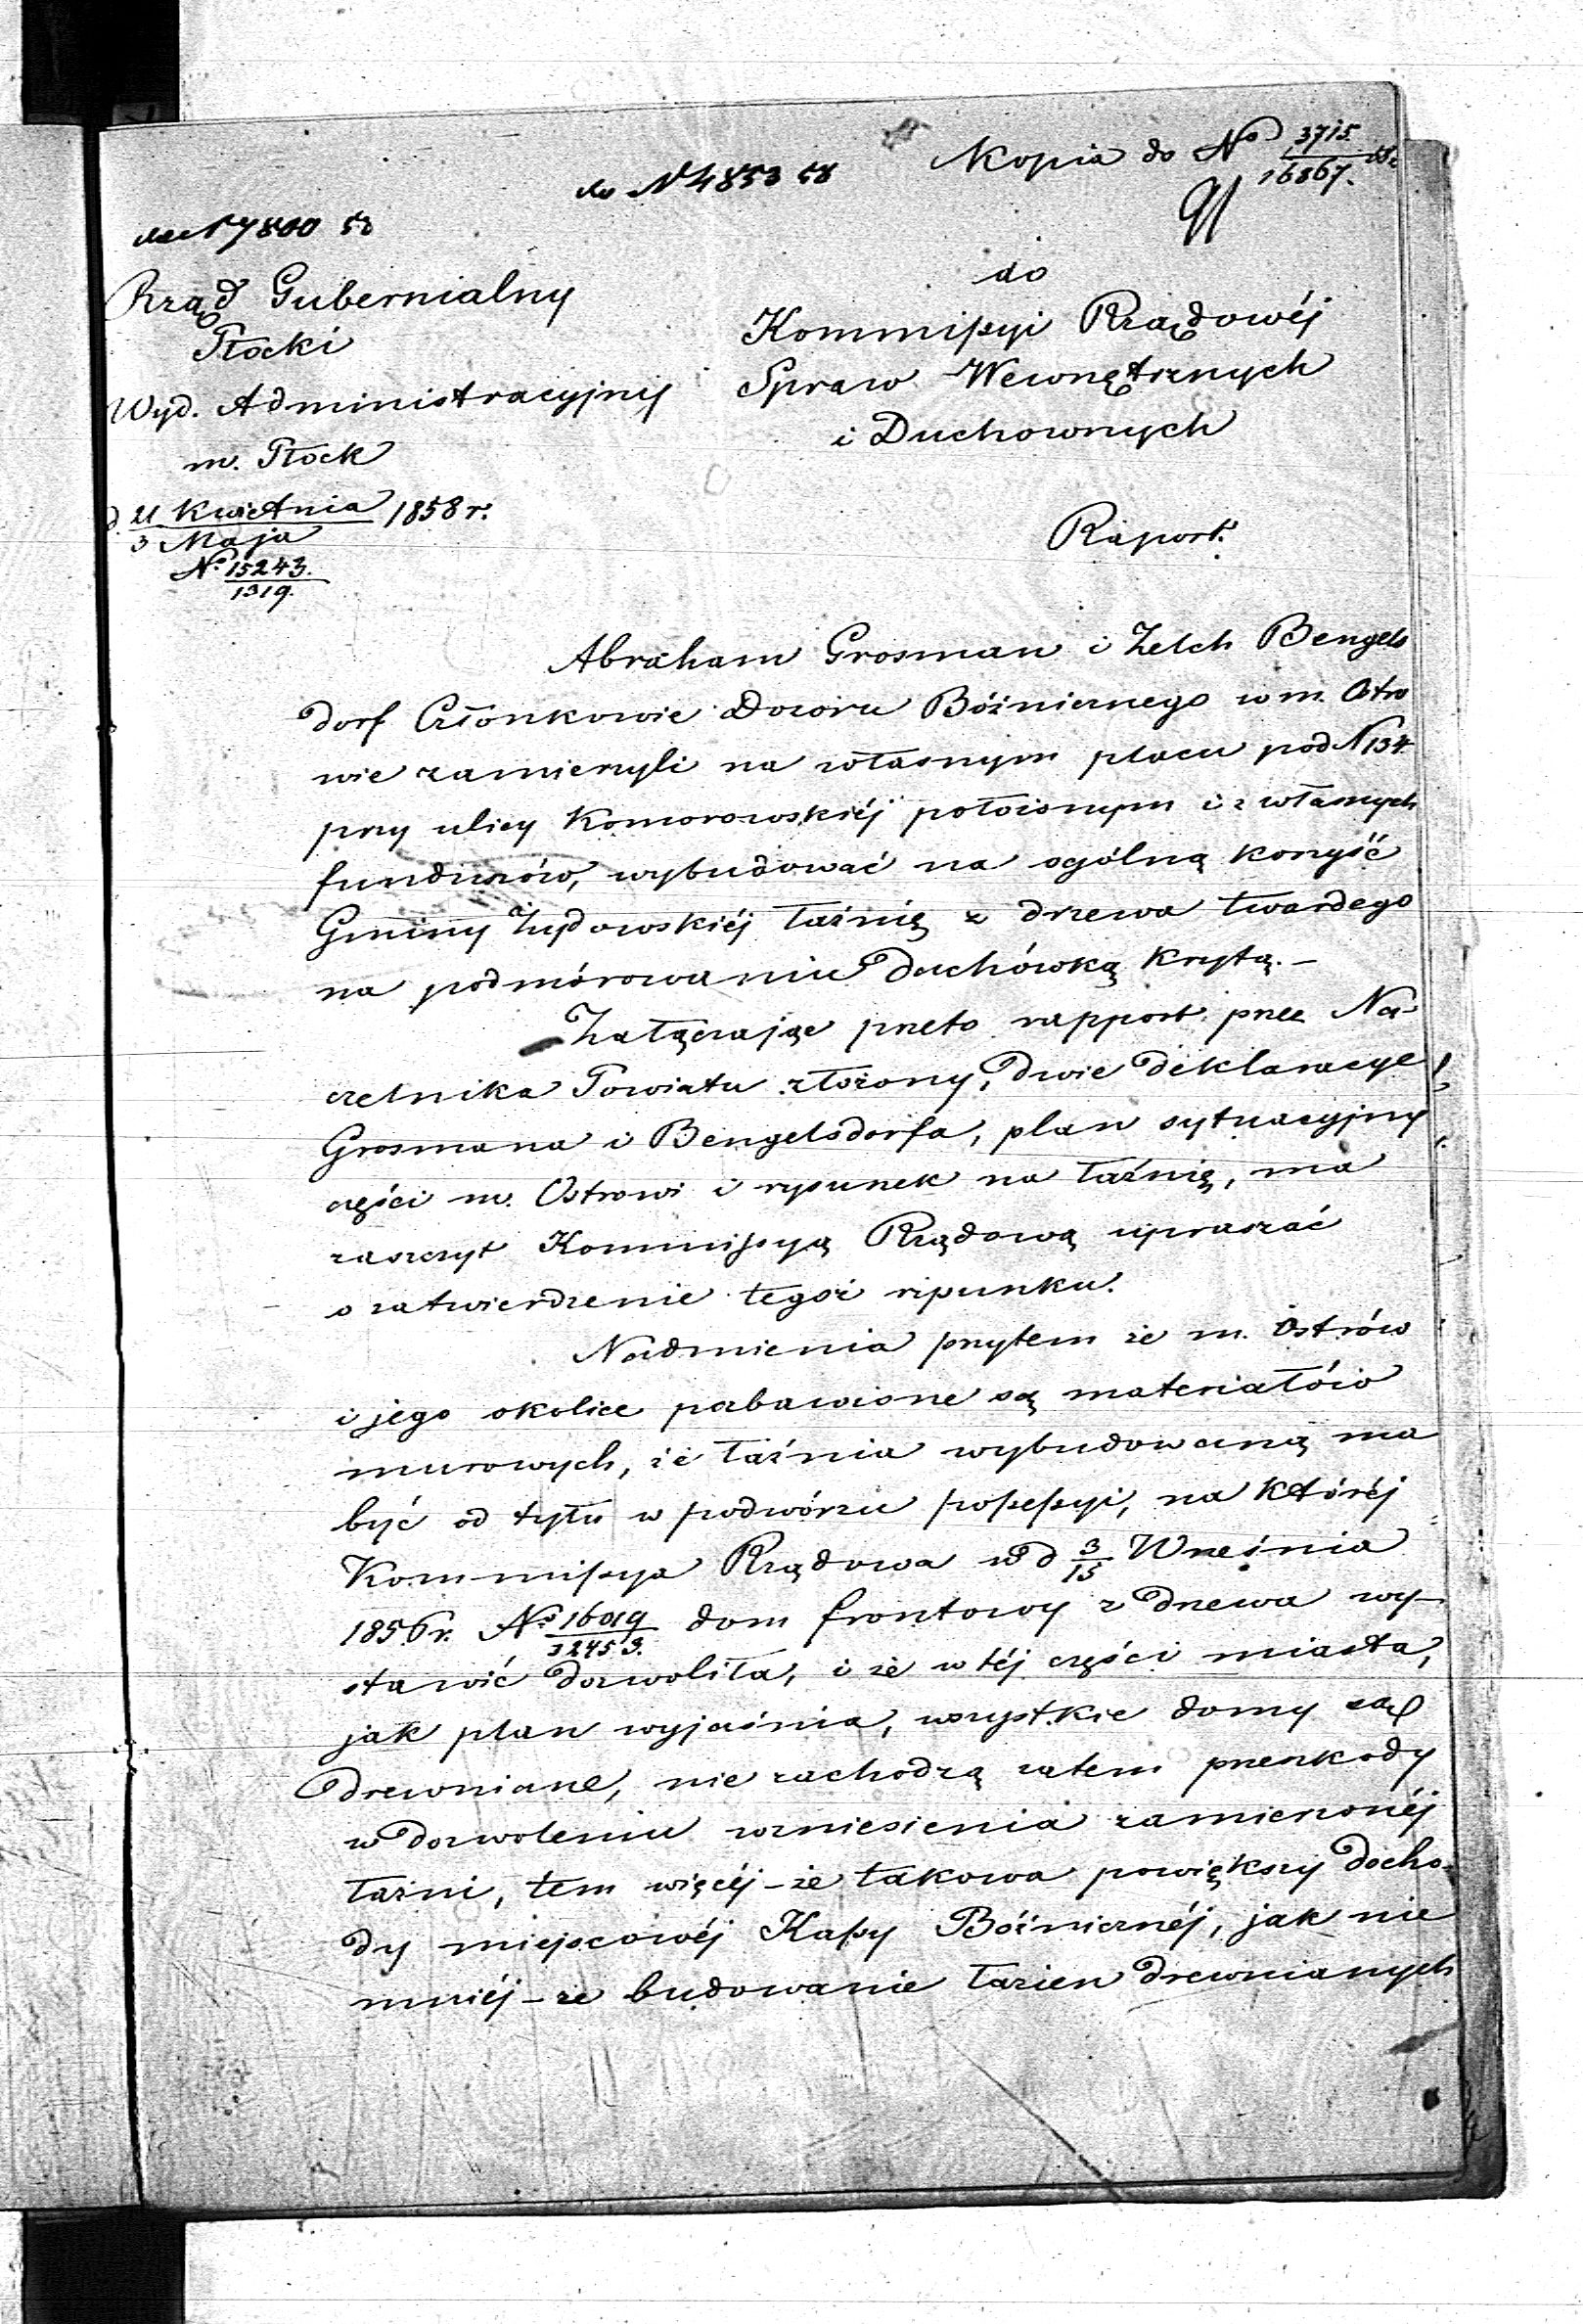 Kopia do № 3715/16867. 58.
do N 4853 58
17800 58
91
Rząd Gubernialny
Płocki
Wyd. Administracyjny
m. Płock
d. 21 Kwietnia/3 Maja 1858 r.
№ 15243./1319.
do
Kommissyi Rządowéj
Spraw Wewnętrznych
i Duchownych
Raport.
Abraham Grosman i Zelch Bengels
dorf Członkowie Dozoru Bóżnicznego w m. Ostro
wie zamierzyli na własnym placu pod N 134
przy ulicy Komorowskiéj położonym i z własnych
funduszów, wybudować na ogólną korzyść
Gminy Żydowskiéj łaźnię z drzewa twardego
na podmórowaniu dachówką krytą. –
Załączając przeto rapport przez Na-
czelnika Powiatu złożony, dwie deklaracye
Grosmana i Bengelsdorfa, plan sytuacyjny
części m. Ostrowi i rysunek na łaźnię, ma
zaszczyt Kommissyą Rządową upraszać
o zatwierdzenie tegoż rysunku.
Nadmienia przytem że m. Ostrów
i jego okolice pozbawione są materiałów
murowych, że łaźnia wybudowaną ma
być od tyłu w podwórzu possessyi, na któréj
Kommissya Rządowa w d 3/15 Września
1856 r. № 16019/32453. dom frontowy z drzewa wy-
stawić dozwoliła, i że w téj części miasta,
jak plan wyjaśnia, wszystkie domy są
drewniane, nie zachodzą zatem przeszkody
w dozwoleniu wzniesienia zamierzonéj
łaźni, tem więcéj – że takowa powiększy docho-
dy miejscowéj Kassy Bóżnicznéj, jak nie
mniéj – że budowanie łazien drewnianych